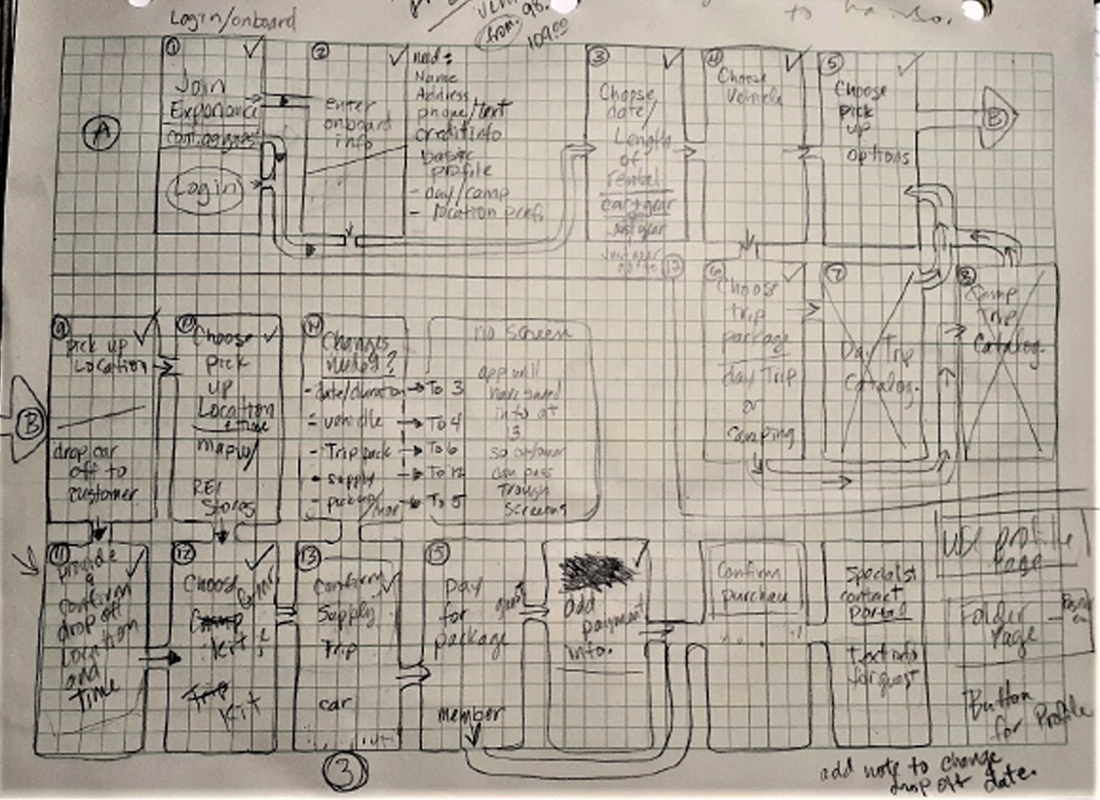 Login/onboard
from
98.
109.00
to
A
1
Join
Experience
Login
2
enter
onboard
info
need:
Name
Address
phone/text
credit info
basic
profile
- day/camp
- location pref.
3
Choose
date/
Length
of
rental
car+gear
just gear
4
Choose
Vehicle
5
Choose
pick
up
options
B
6
Choose
trip
package
day Trip
or
Camping
7
Day Trip
Catalog.
8
Camp
Trip
Catalog.
B
9
pick up
Location
drop car
off to
customer
10
Choose
pick
up
Location
+ time
maply/
REI
Stores
14
Changes
needed?
- date/duration → To 3
- vehicle → To 4
- Trip pack → To 6
- supply → To 12
- pickup/ → To 5
no screen
app will
have saved
info at
13
so customer
can pass
trough
screens
11
Provide
&
confirm
drop off
location
and
Time
12
Choose
Camp
kit
Trip
Kit
13
Confirm
Supply
Trip
car
3
15
pay
for
package
guest
member
Add
payment
info.
Confirm
purchase
Specialist
contact
portal
Text info
for guest
profile
Page
Folder
Page
Button
for Profile
add note to change
drop off date.